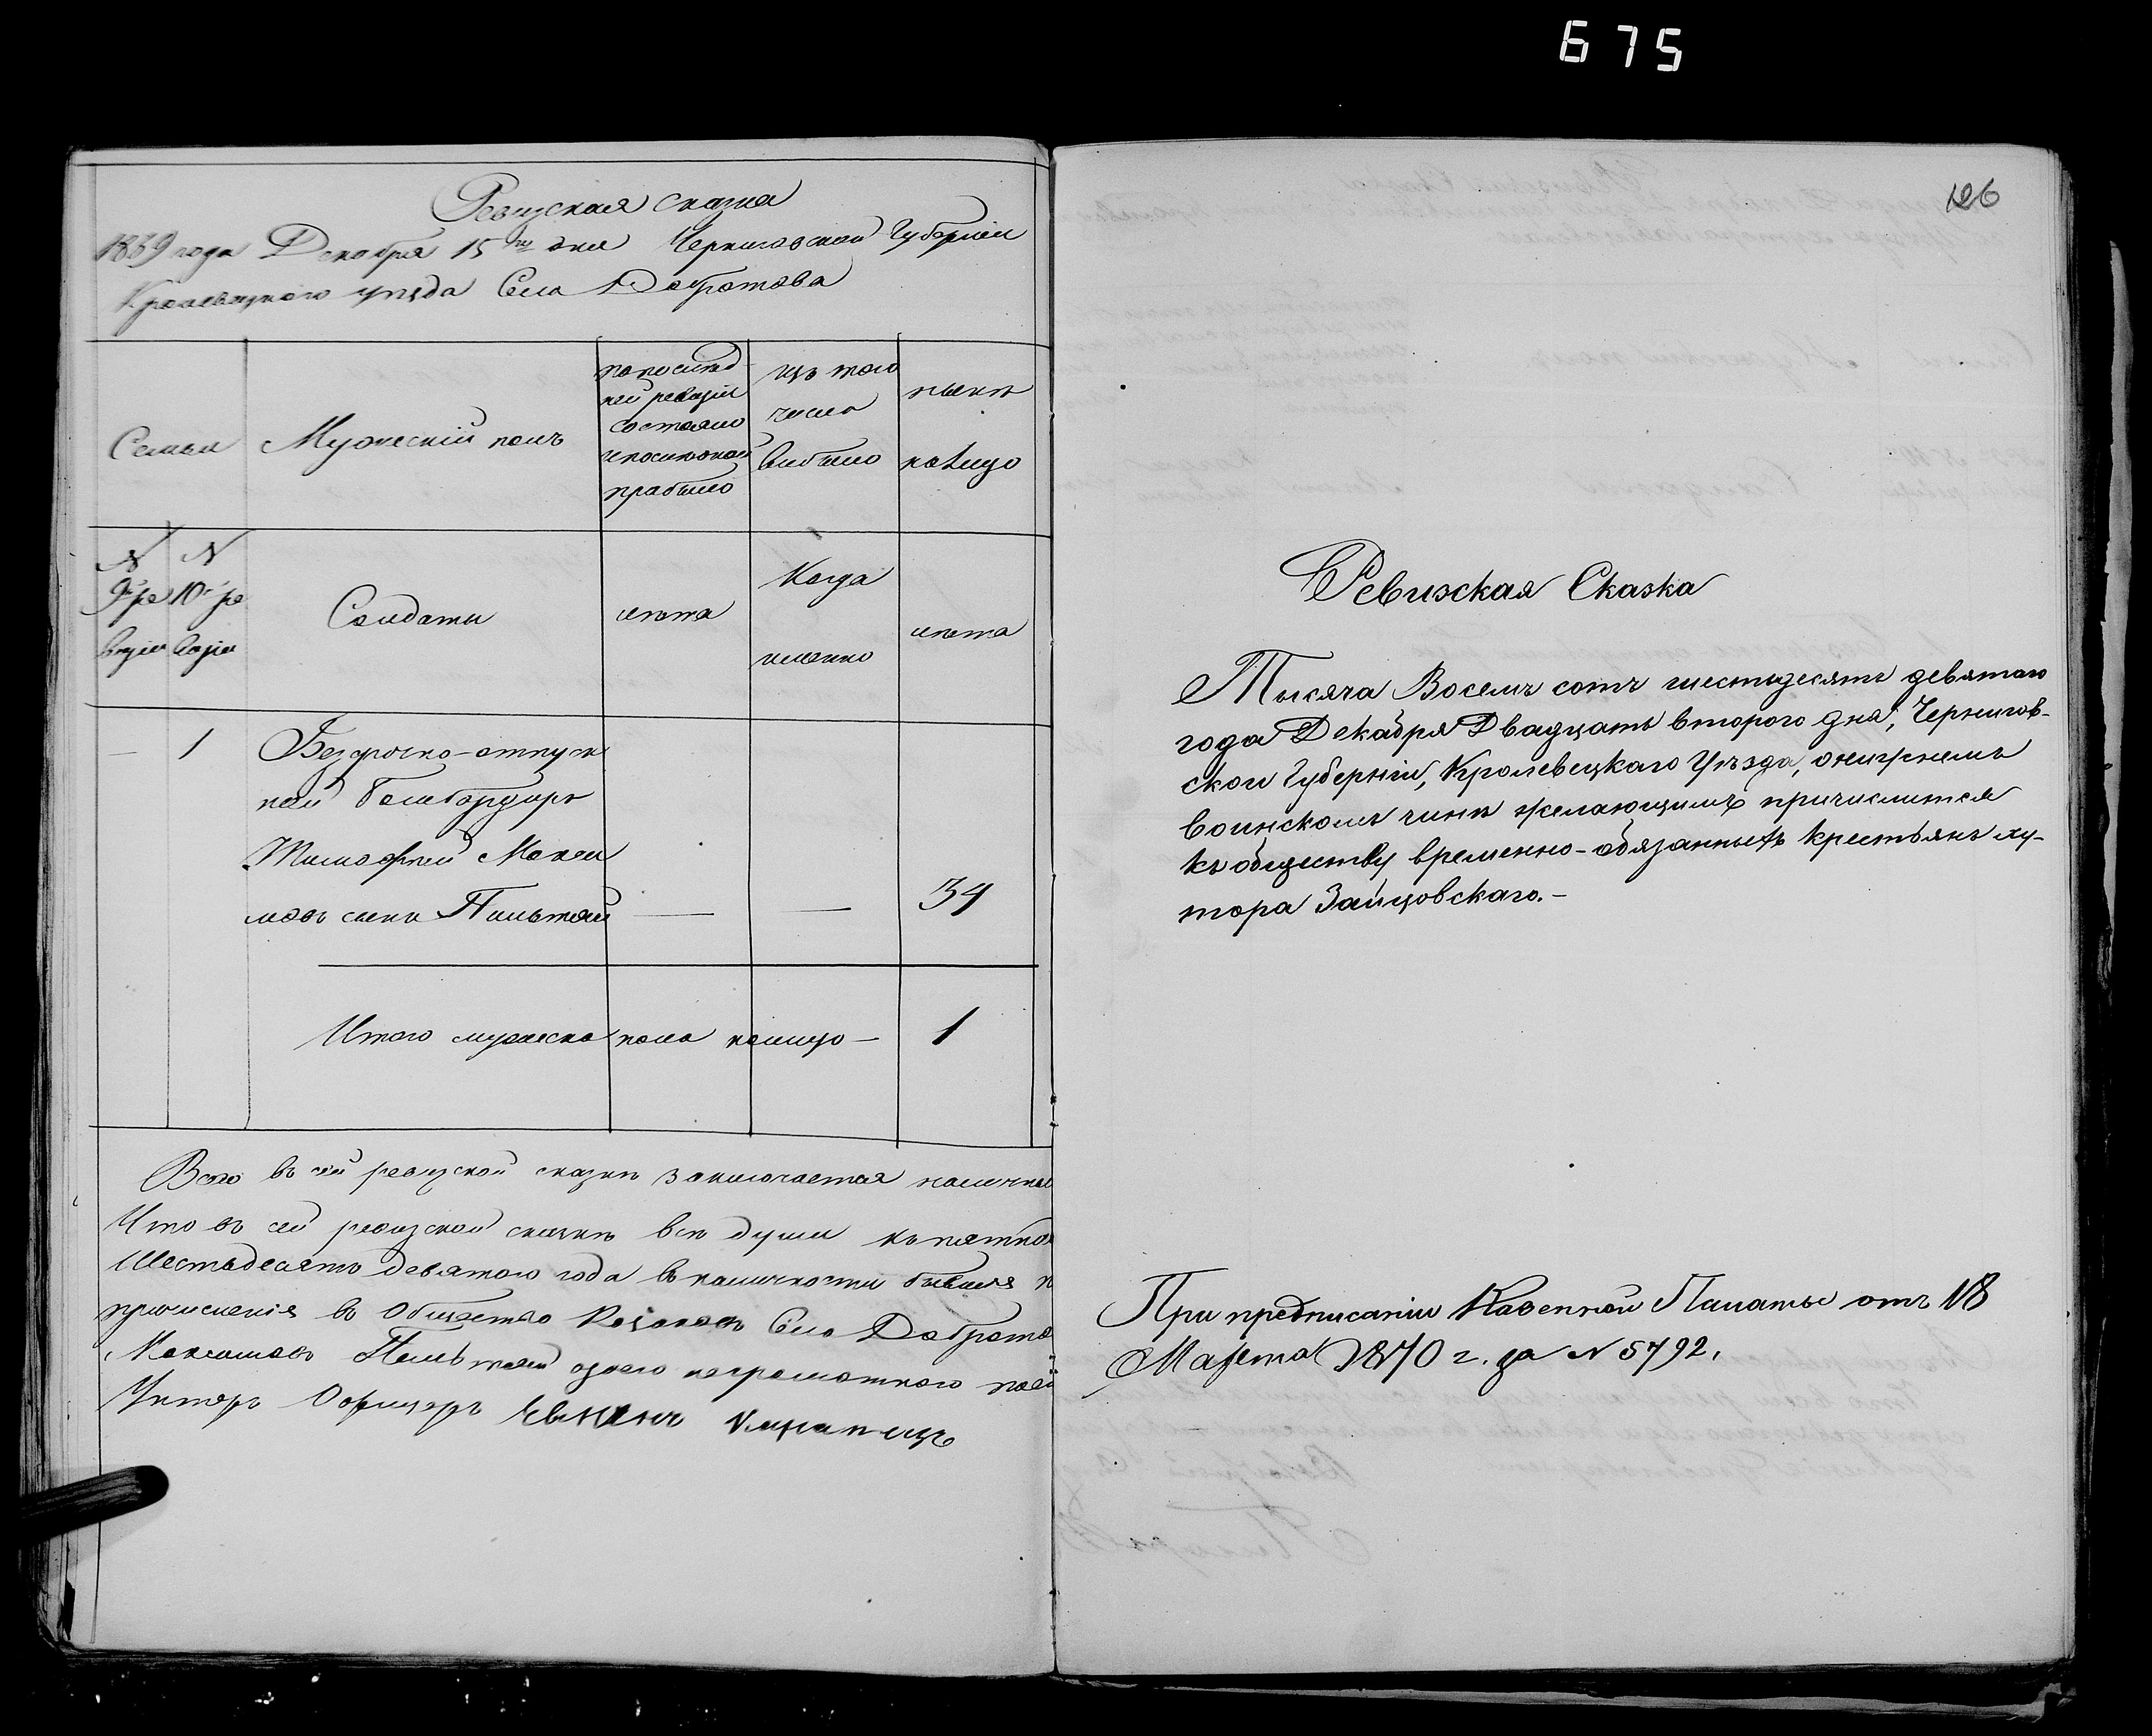 675
Ревизская сказка
1869 года Декабря 15го дня Черниговской Губернии
Кролевецкого уезда Села Добротова
Семьи
Мужескій полъ
по послѣд-
ней ревизіи
состояло
и послѣ оной
прибыло
изъ того
числа
выбыло
нынѣ
налицо
N
9й ре
визіи
N
10й ре
визіи
Солдаты
лѣта
Когда
именно
лѣта
—
1
Безсрочно-отпуск
ной Бомбардиръ
Тимофей Макси
мовъ сынъ
—
—
34
Итого мужеска пола налицо —
1
Всего въ сей ревизской сказкѣ заключается налични
Что въ сей ревизской сказкѣ всѣ души
Шестьдесятъ девятого года въ наличности бывшія п
причисленія въ Общество Козаковъ Села Доброто
Максимовъ неграмотного
Унтеръ Офицеръ
126
Ревизская Сказка
Тысяча Восемь сотъ шестьдесятъ девятаго
года Декабря Двадцать второго дня, Чернигов-
ской Губерніи, Кролевецкаго Уѣзда, о нижнемъ
воинскомъ чинѣ желающимъ причислится
къ обществу временно-обязанныхъ крестьянъ ху-
тора Зайцовскаго.—
При предписаніи Казенной Палаты отъ 18
Марта 1870 г. за N 5792.